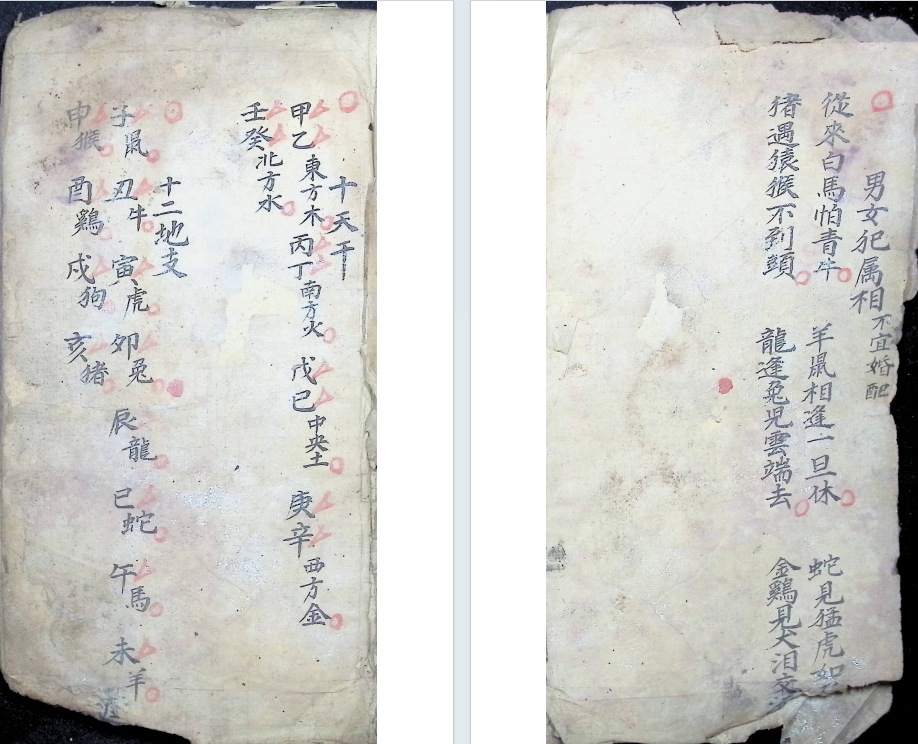 十天干
甲乙 東方木 丙丁 南方火 戊己 中央土 庚辛 西方金
壬癸 北方水
十二地支
子鼠 丑牛 寅虎 卯兔 辰龍 巳蛇 午馬 未羊
申猴 酉鷄 戌狗 亥猪
男女犯属相不宜婚配
從來白馬怕青牛 羊鼠相逢一旦休 蛇見猛虎
猪遇猿猴不到頭 龍逢兔児雲端去 金鷄見犬泪交